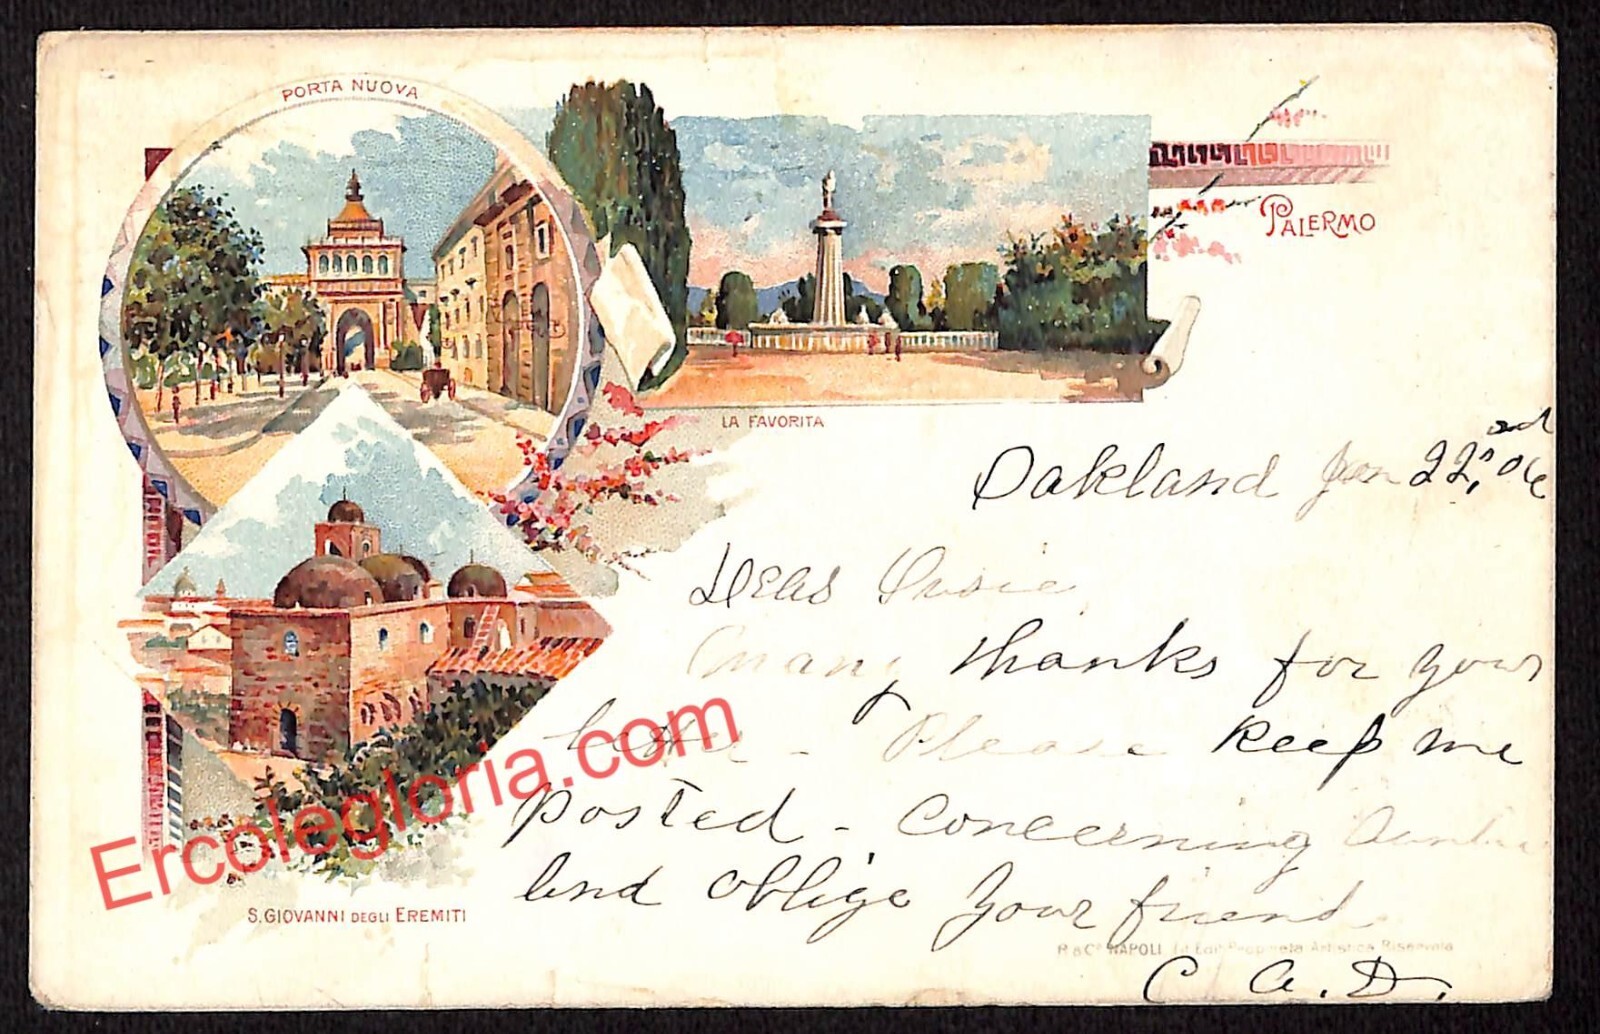 PORTA NUOVA
PALERMO
LA FAVORITA
Oakland Jan 22nd, 06
Dear Susie
Many thanks for your
letter - Please keep me
posted - concerning
and oblige your friend
C. A. D.
S. GIOVANNI DEGLI EREMITI
R & Co. NAPOLI Proprietà Artistica Riservata
Ercolegloria.com